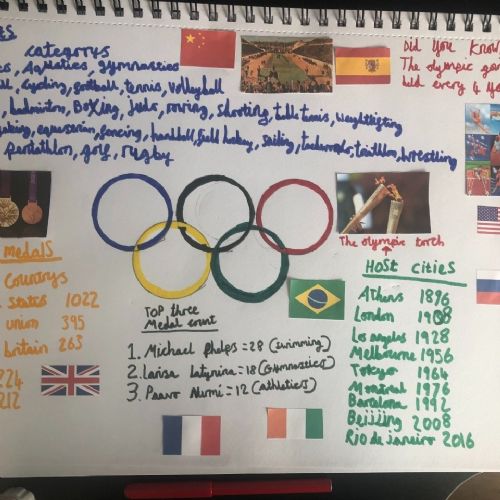 categorys
, Aquatics, gymnastics
cycling, football, tennis, volleyball
, badminton, Boxing, judo, rowing, shooting, table tennis, weightlifting
, equestrian, fencing, handball, field hockey, sailing, taekwondo, triathlon, wrestling
pentathlon, golf, rugby
Did You Know
The olympic
every 4
The olympic torch
Medals
Countrys
States 1022
union 395
britain 263
224
212
TOP three
Medal count
1. Michael Phelps = 28 (swimming)
2. Larisa Latynina = 18 (Gymnastics)
3. Paavo Nurmi = 12 (athletics)
Host cities
Athens 1896
London 1908
Los angeles 1928
Melbourne 1956
Tokyo 1964
Montreal 1976
Barcelona 1992
Beijing 2008
Rio de janeiro 2016